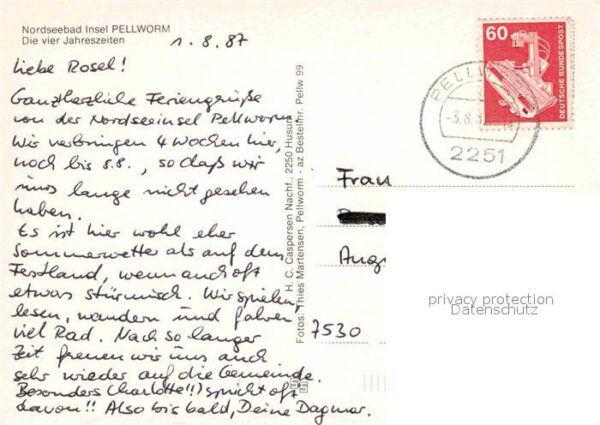 Nordseebad Insel PELLWORM
Die vier Jahreszeiten
1.8.87
Liebe Rosel!
Ganz herzliche Feriengrüße
von der Nordseeinsel Pellworm
Wir verbringen 4 Wochen hier,
noch bis 8.8., so daß wir
uns lange nicht gesehen
haben.
Es ist hier wohl eher
Sommerwetter als auf dem
Festland, wenn auch oft
etwas stürmisch. Wir spielen,
lesen, wandern und fahren
viel Rad. Nach so langer
Zeit freuen wir uns auch
sehr wieder auf die Gemeinde.
Besonders Charlotte(!!) spricht oft
davon!! Also bis bald, Deine Dagmar.
H. C. Caspersen Nachf., 2250 Husum
Fotos: Thies Martensen, Pellworm - az Bestellnr. Pellw 99
60
DEUTSCHE BUNDESPOST
PELLW
-3.8.8
2251
Frau
Aug
7530
privacy protection
Datenschutz